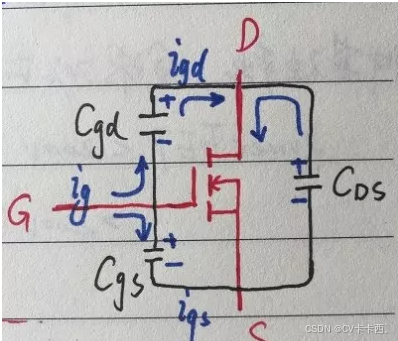 D
igd
+ +
Cgd
- +
ig
CDS
G
-
+
Cgs
-
igs
S
CSDN @CV卡卡西.